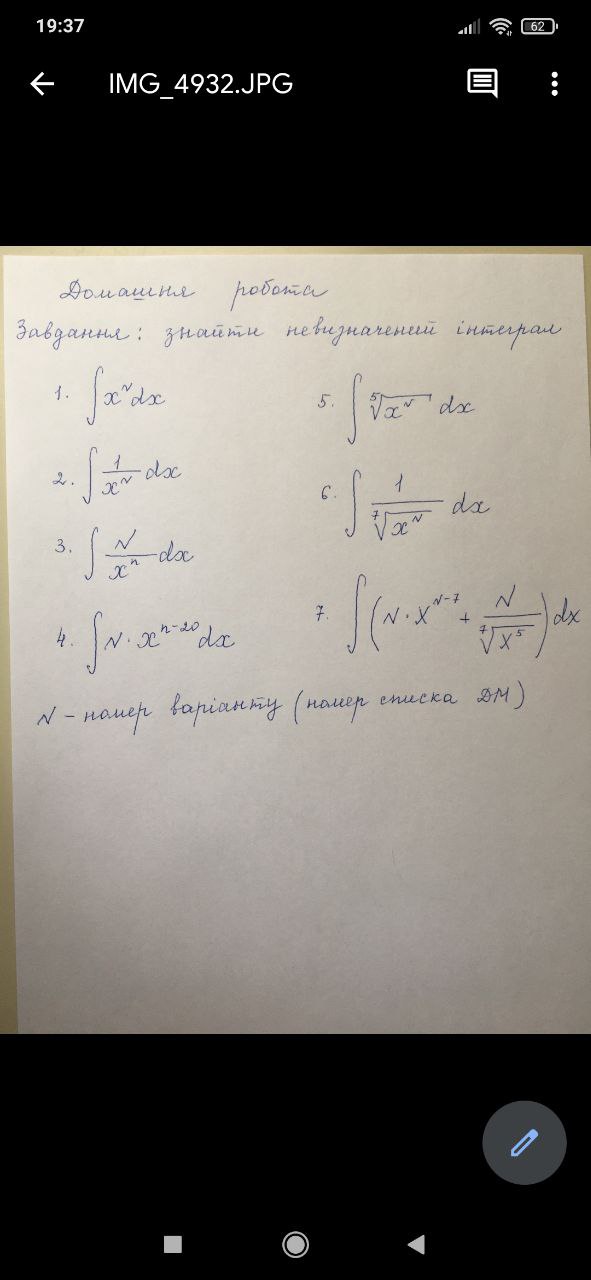 19:37
62
IMG_4932.JPG
Домашня робота
Завдання: знайти невизначений інтеграл
1. ∫ x^N dx
2. ∫ 1/x^N dx
3. ∫ N/x^n dx
4. ∫ N · x^(n-20) dx
5. ∫ ⁵√(x^N) dx
6. ∫ 1/⁷√(x^N) dx
7. ∫ (N · x^(N-7) + N/⁷√(x^5)) dx
N – номер варіанту (номер списка ДМ)